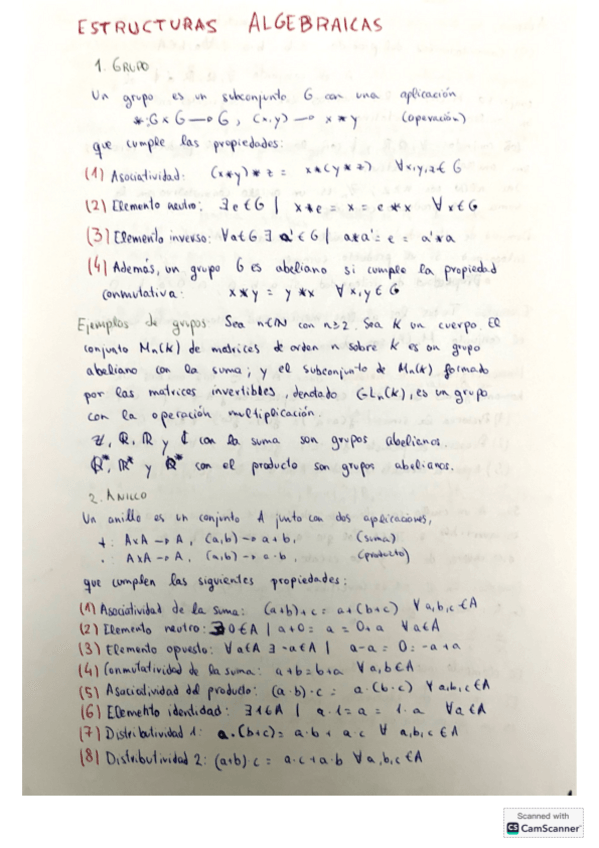 ESTRUCTURAS ALGEBRAICAS
1. GRUPO
Un grupo es un subconjunto G con una aplicación
*: G x G → G, (x,y) → x * y (operación)
que cumple las propiedades:
(1) Asociatividad: (x*y)*z = x*(y*z) ∀x,y,z∈G
(2) Elemento neutro: ∃e∈G | x*e = x = e*x ∀x∈G
(3) Elemento inverso: ∀a∈G ∃ a'∈G | a*a' = e = a'*a
(4) Además, un grupo G es abeliano si cumple la propiedad
conmutativa: x*y = y*x ∀x,y∈G
Ejemplos de grupos. Sea n∈N con n≥2. Sea K un cuerpo. El
conjunto Mn(K) de matrices de orden n sobre K es un grupo
abeliano con la suma; y el subconjunto de Mn(K) formado
por las matrices invertibles, denotado GLn(K), es un grupo
con la operación multiplicación.
Z, Q, R y C con la suma son grupos abelianos.
Q*, R* y Q* con el producto son grupos abelianos.
2. ANILLO
Un anillo es un conjunto A junto con dos aplicaciones,
+: AxA → A, (a,b) → a+b, (suma)
·: AxA → A, (a,b) → a·b, (producto)
que cumplen las siguientes propiedades:
(1) Asociatividad de la suma: (a+b)+c = a+(b+c) ∀a,b,c∈A
(2) Elemento neutro: ∃0∈A | a+0 = a = 0+a ∀a∈A
(3) Elemento opuesto: ∀a∈A ∃-a∈A | a-a = 0 = -a+a
(4) Conmutatividad de la suma: a+b = b+a ∀a,b∈A
(5) Asociatividad del producto: (a·b)·c = a·(b·c) ∀a,b,c∈A
(6) Elemento identidad: ∃1∈A | a·1 = a = 1·a ∀a∈A
(7) Distributividad 1: a·(b+c) = a·b + a·c ∀ a,b,c∈A
(8) Distributividad 2: (a+b)·c = a·c + a·b ∀a,b,c∈A
Scanned with
CS CamScanner